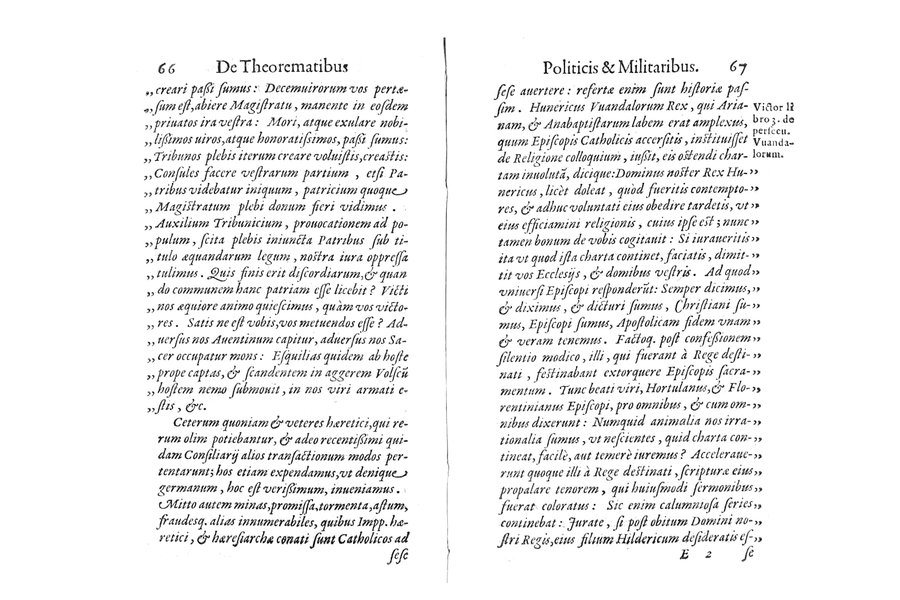 66 De Theorematibus
„creari paſſi ſumus: Decemuirorum vos pertæ-
„ſum eſt, abiere Magiſtratu, manente in eoſdem
„priuatos ira veſtra: Mori, atque exulare nobi-
„liſſimos uiros, atque honoratiſſimos, paſſi ſumus:
„Tribunos plebis iterum creare voluiſtis, creaſtis:
„Conſules facere veſtrarum partium, etſi Pa-
„tribus videbatur iniquum, patricium quoque
„Magiſtratum plebi donum fieri vidimus.
„Auxilium Tribunicium, prouocationem ad po-
„pulum, ſcita plebis iniuncta Patribus ſub ti-
„tulo æquandarum legum, noſtra iura oppreſſa
„tulimus. Quis finis erit diſcordiarum, & quan
„do communem hanc patriam eſſe licebit? Victi
„nos æquiore animo quieſcimus, quàm vos victo-
„res. Satis ne eſt vobis, vos metuendos eſſe? Ad-
„uerſus nos Auentinum capitur, aduerſus nos Sa-
„cer occupatur mons: Eſquilias quidem ab hoſte
„prope captas, & ſcandentem in aggerem Volſcũ
„hoſtem nemo ſubmouit, in nos viri armati e-
„ſtis, &c.
Ceterum quoniam & veteres hæretici, qui re-
rum olim potiebantur, & adeo recentiſſimi qui-
dam Conſiliarij alios tranſactionum modos per-
tentarunt; hos etiam expendamus, vt denique
germanum, hoc eſt veriſſimum, inueniamus.
Mitto autem minas, promiſſa, tormenta, aſtum,
fraudeſq. alias innumerabiles, quibus Impp. hæ-
retici, & hæreſiarchæ conati ſunt Catholicos ad
ſeſe
Politicis & Militaribus. 67
ſeſe auertere: refertæ enim ſunt hiſtoriæ paſ-
ſim. Hunericus Vuandalorum Rex, qui Aria-
nam, & Anabaptiſtarum labem erat amplexus,
quum Epiſcopis Catholicis accerſitis, inſtituiſſet
de Religione colloquium, iuſſit, eis oſtendi char-
tam inuolutã, dicique: Dominus noſter Rex Hu-„
nericus, licèt doleat, quòd fueritis contempto-„
res, & adhuc voluntati eius obedire tardetis, vt„
eius efficiamini religionis, cuius ipſe eſt; nunc„
tamen bonum de vobis cogitauit: Si iuraueritis„
ita vt quod iſta charta continet, faciatis, dimit-„
tit vos Eccleſijs, & domibus veſtris. Ad quod„
vniuerſi Epiſcopi reſponderũt: Semper dicimus,„
& diximus, & dicturi ſumus, Chriſtiani ſu-„
mus, Epiſcopi ſumus, Apoſtolicam fidem vnam„
& veram tenemus. Factoq. poſt confeſſionem„
ſilentio modico, illi, qui fuerant à Rege deſti-„
nati, feſtinabant extorquere Epiſcopis ſacra-„
mentum. Tunc beati viri, Hortulanus, & Flo-„
rentinianus Epiſcopi, pro omnibus, & cum om-„
nibus dixerunt: Numquid animalia nos irra-„
tionalia ſumus, vt neſcientes, quid charta con-„
tineat, facilè, aut temerè iuremus? Acceleraue-„
runt quoque illi à Rege deſtinati, ſcripturæ eius„
propalare tenorem, qui huiuſmodi ſermonibus„
fuerat coloratus: Sic enim calumnioſa ſeries„
continebat: Jurate, ſi poſt obitum Domini no-„
ſtri Regis, eius filium Hildericum deſideratis eſ-„
E 2 ſe
Victor li
bro 3. de
perſecu.
Vuanda-
lorum.